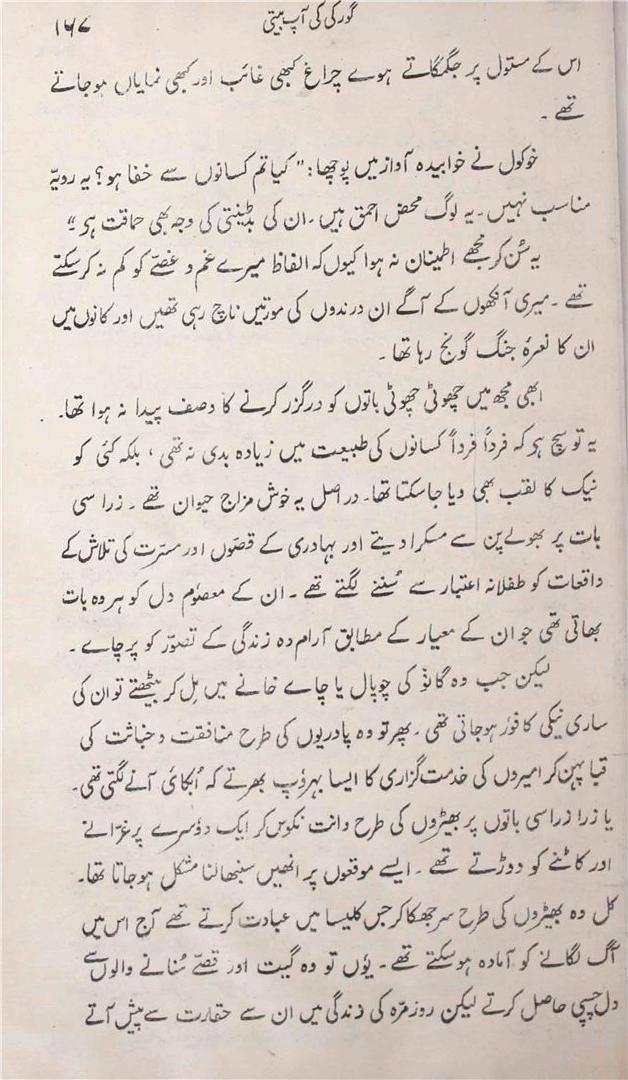 گورکی کی آپ بیتی
۱۶۷
اس کے مستول پر جگمگاتے ہوے چراغ کبھی غائب اور کبھی نمایاں ہوجاتے
تھے ۔
خوکول نے خوابیدہ آواز میں پوچھا: " کیا تم کسانوں سے خفا ہو؟ یہ رویّہ
مناسب نہیں ۔ یہ لوگ محض احمق ہیں ۔ ان کی بدنیتی کی وجہ بھی حماقت ہی ۔"
یہ سُن کر مجھے اطینان نہ ہوا کیوں کہ الفاظ میرے غم و غصّے کو کم نہ کرسکتے
تھے ۔ میری آنکھوں کے آگے ان درندوں کی مورتیں ناچ رہی تھیں اور کانوں میں
ان کا نعرۂ جنگ گونج رہا تھا ۔
ابھی مجھ میں چھوٹی چھوٹی باتوں کو درگزر کرنے کا وصف پیدا نہ ہوا تھا۔
یہ تو سچ ہو کہ فرداً فرداً کسانوں کی طبیعت میں زیادہ بدی نہ تھی ، بلکہ کئی کو
نیک کا لقب بھی دیا جاسکتا تھا۔ دراصل یہ خوش مزاج حیوان تھے ۔ زرا سی
بات پر بھولے پن سے مسکرا دیتے اور بہادری کے قصّوں اور مسرّت کی تلاش کے
واقعات کو طفلانہ اعتبار سے سُننے لگتے تھے ۔ ان کے معصوم دل کو ہر وہ بات
بھاتی تھی جو ان کے معیار کے مطابق آرام دہ زندگی کے تصوّر کو پرچاے ۔
لیکن جب وہ گانو کی چوپال یا چاے خانے میں مِل کر بیٹھتے تو ان کی
ساری نیکی کافور ہوجاتی تھی ۔ پھر تو وہ پادریوں کی طرح منافقت و خباثت کی
قبا پہن کر امیروں کی خدمت گزاری کا ایسا بہروپ بھرتے کہ اُبکائی آنے لگتی تھی۔
یا زرا زرا سی باتوں پر بھیڑوں کی طرح دانت نکوس کر ایک دوسرے پر غرّاتے
اور کاٹنے کو دوڑتے تھے ۔ ایسے موقعوں پر انھیں سنبھالنا مشکل ہوجاتا تھا۔
کل وہ بھیڑوں کی طرح سر جھکا کر جس کلیسا میں عبادت کرتے تھے آج اس میں
آگ لگانے کو آمادہ ہوسکتے تھے ۔ یوں تو وہ گیت اور قصّے سُنانے والوں سے
دل چسپی حاصل کرتے لیکن روزمرّہ کی زندگی میں ان سے حقارت سے پیش آتے